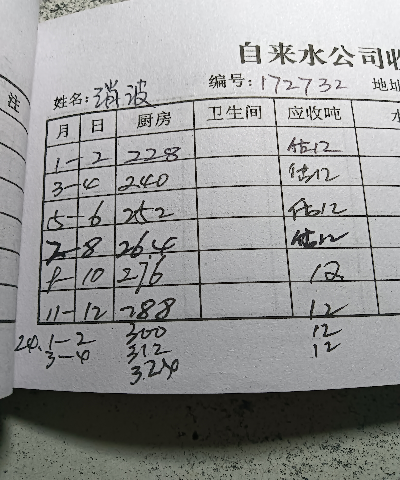 自来水公司收
编号:172732 地址
姓名:琑波
注
月 日 厨房 卫生间 应收吨 水
1-2 228 估12
3-4 240 估12
5-6 252 估12
7-8 264 估12
9-10 276 12
11-12 288 12
24.1-2 300 12
3-4 312 12
324